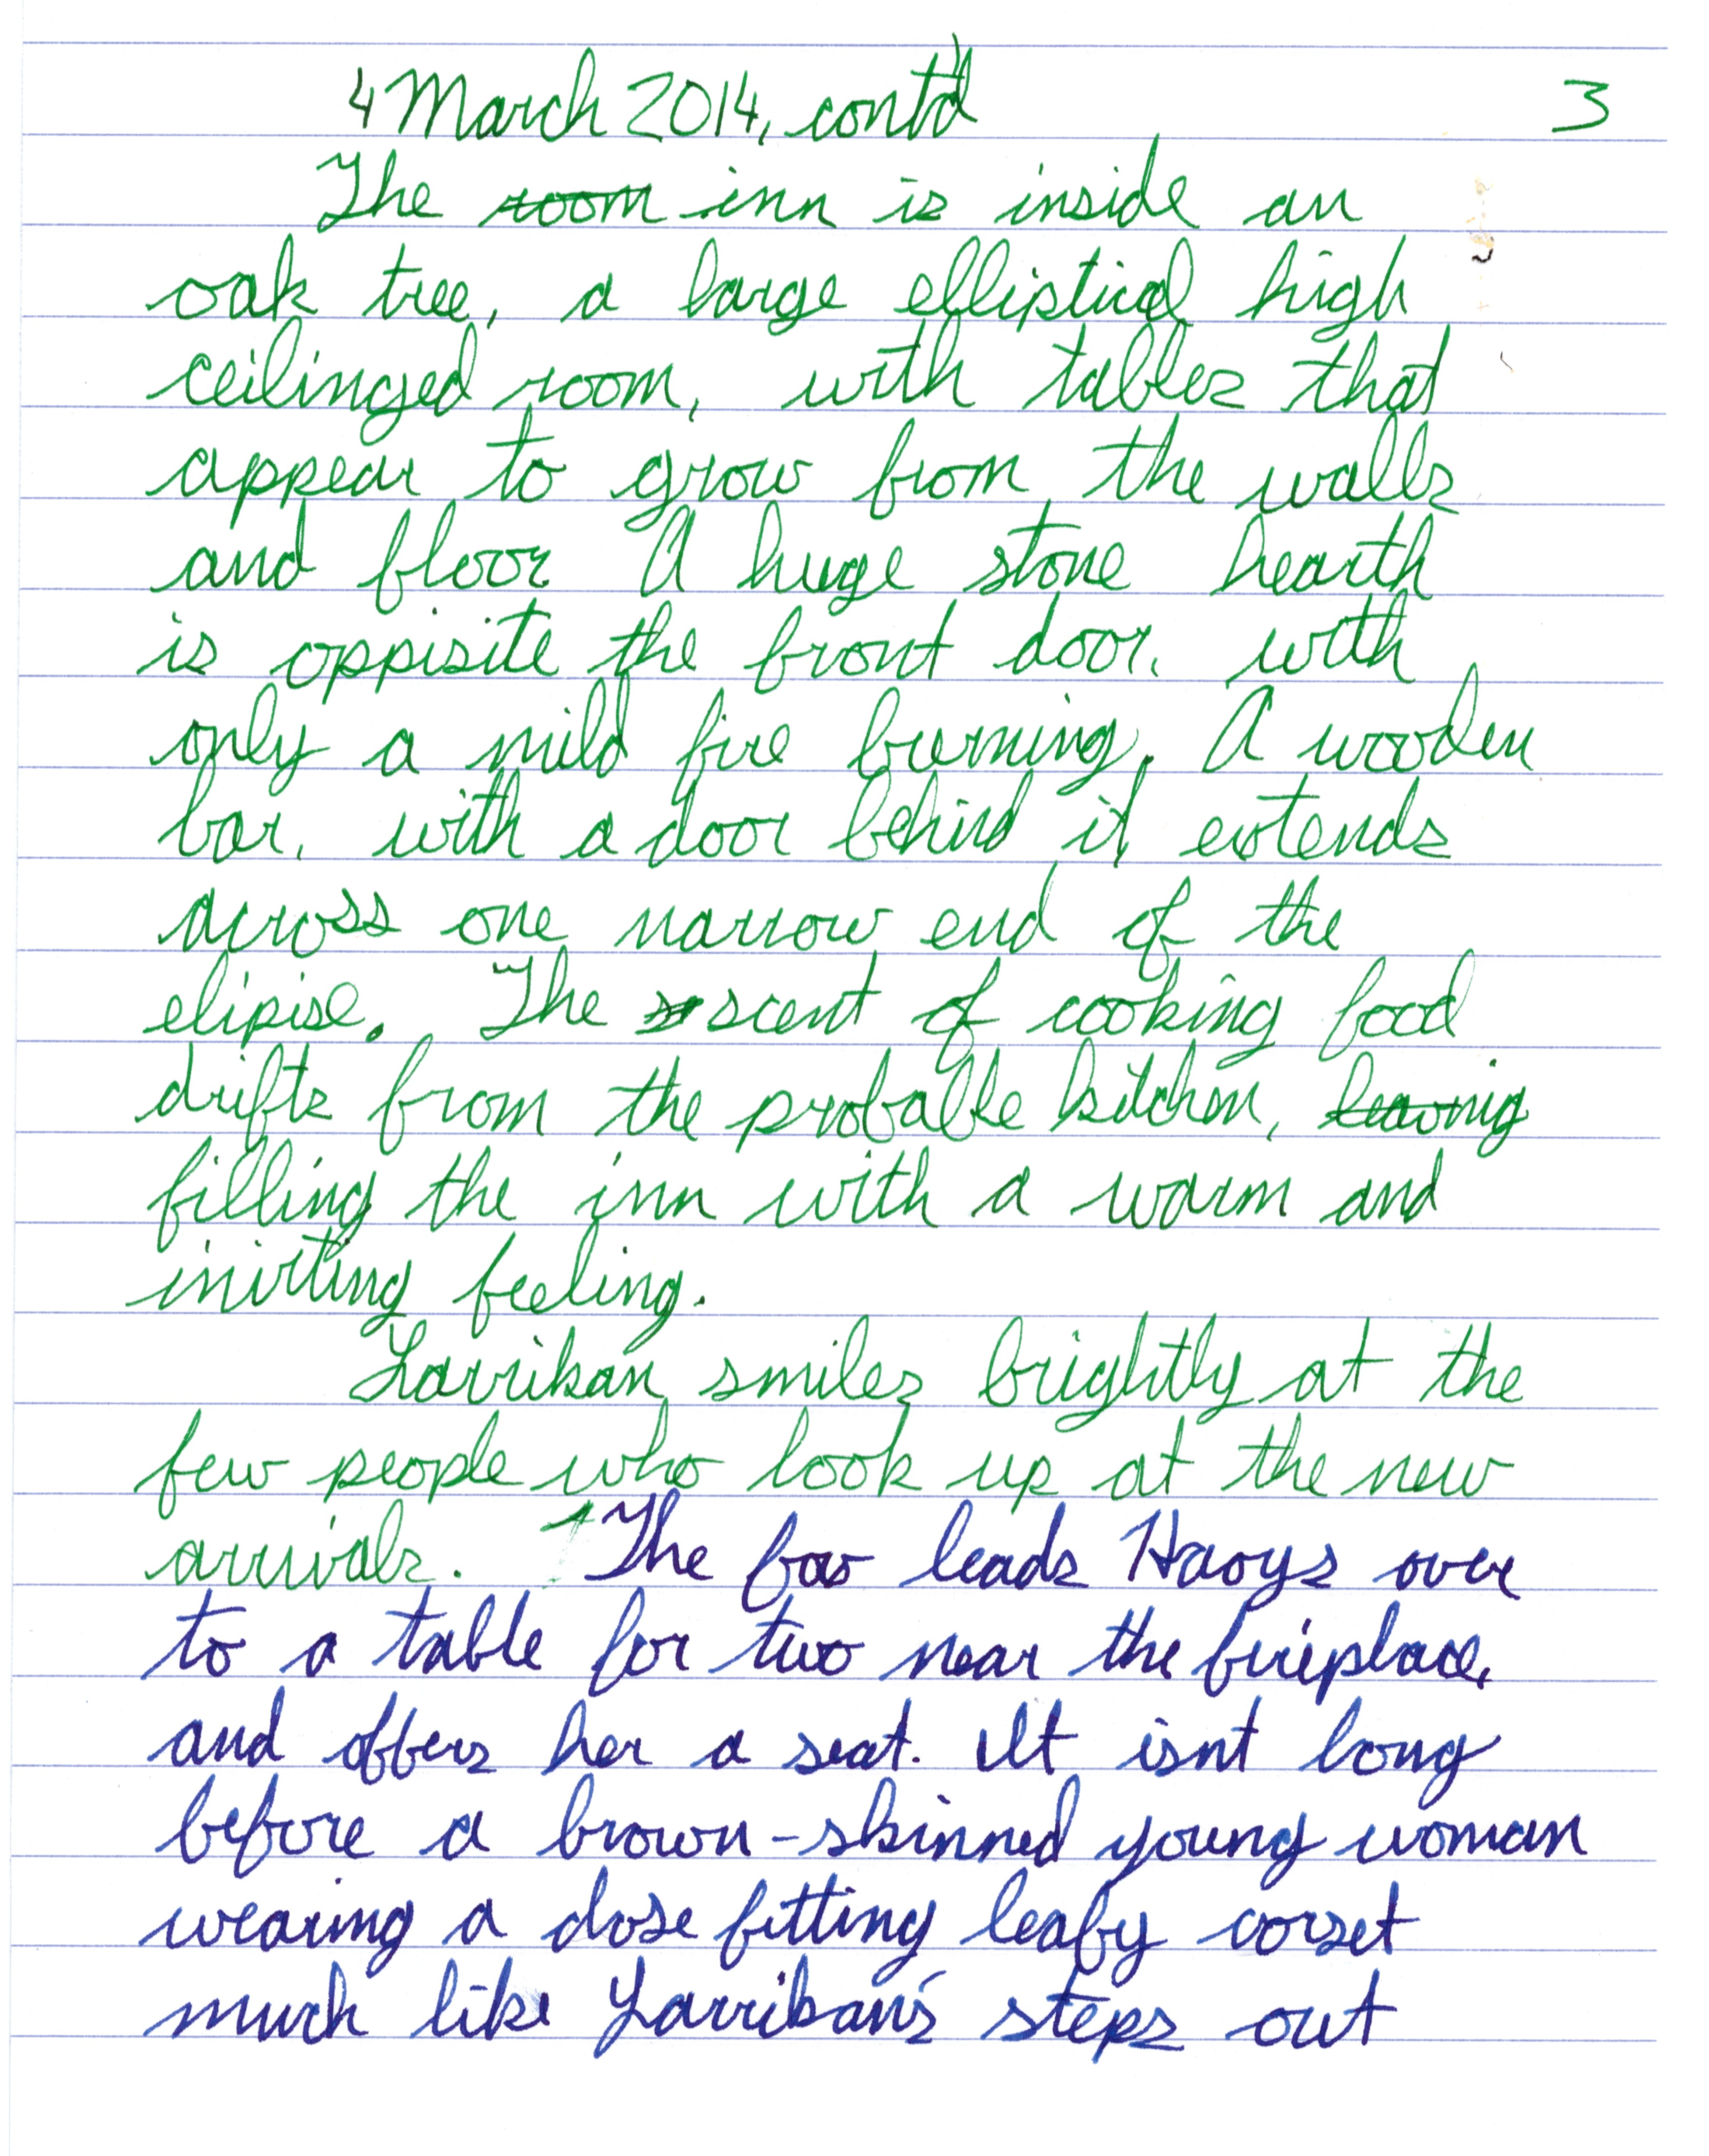 4 March 2014, cont'd 3
The room inn is inside an
oak tree, a large elliptical high
ceilinged room, with tables that
appear to grow from the walls
and floor. A huge stone hearth
is oppisite the front door, with
only a mild fire burning. A wooden
bar, with a door behind it extends
across one narrow end of the
elipise. The scent of cooking food
drifts from the probable kitchen, leaving
filling the inn with a warm and
inviting feeling.
Larrikan smiles brightly at the
few people who look up at the new
arrivals. The fox leads Haoys over
to a table for two near the fireplace,
and offers her a seat. It isnt long
before a brown-skinned young woman
wearing a close fitting leafy corset
much like Larrikan's steps out